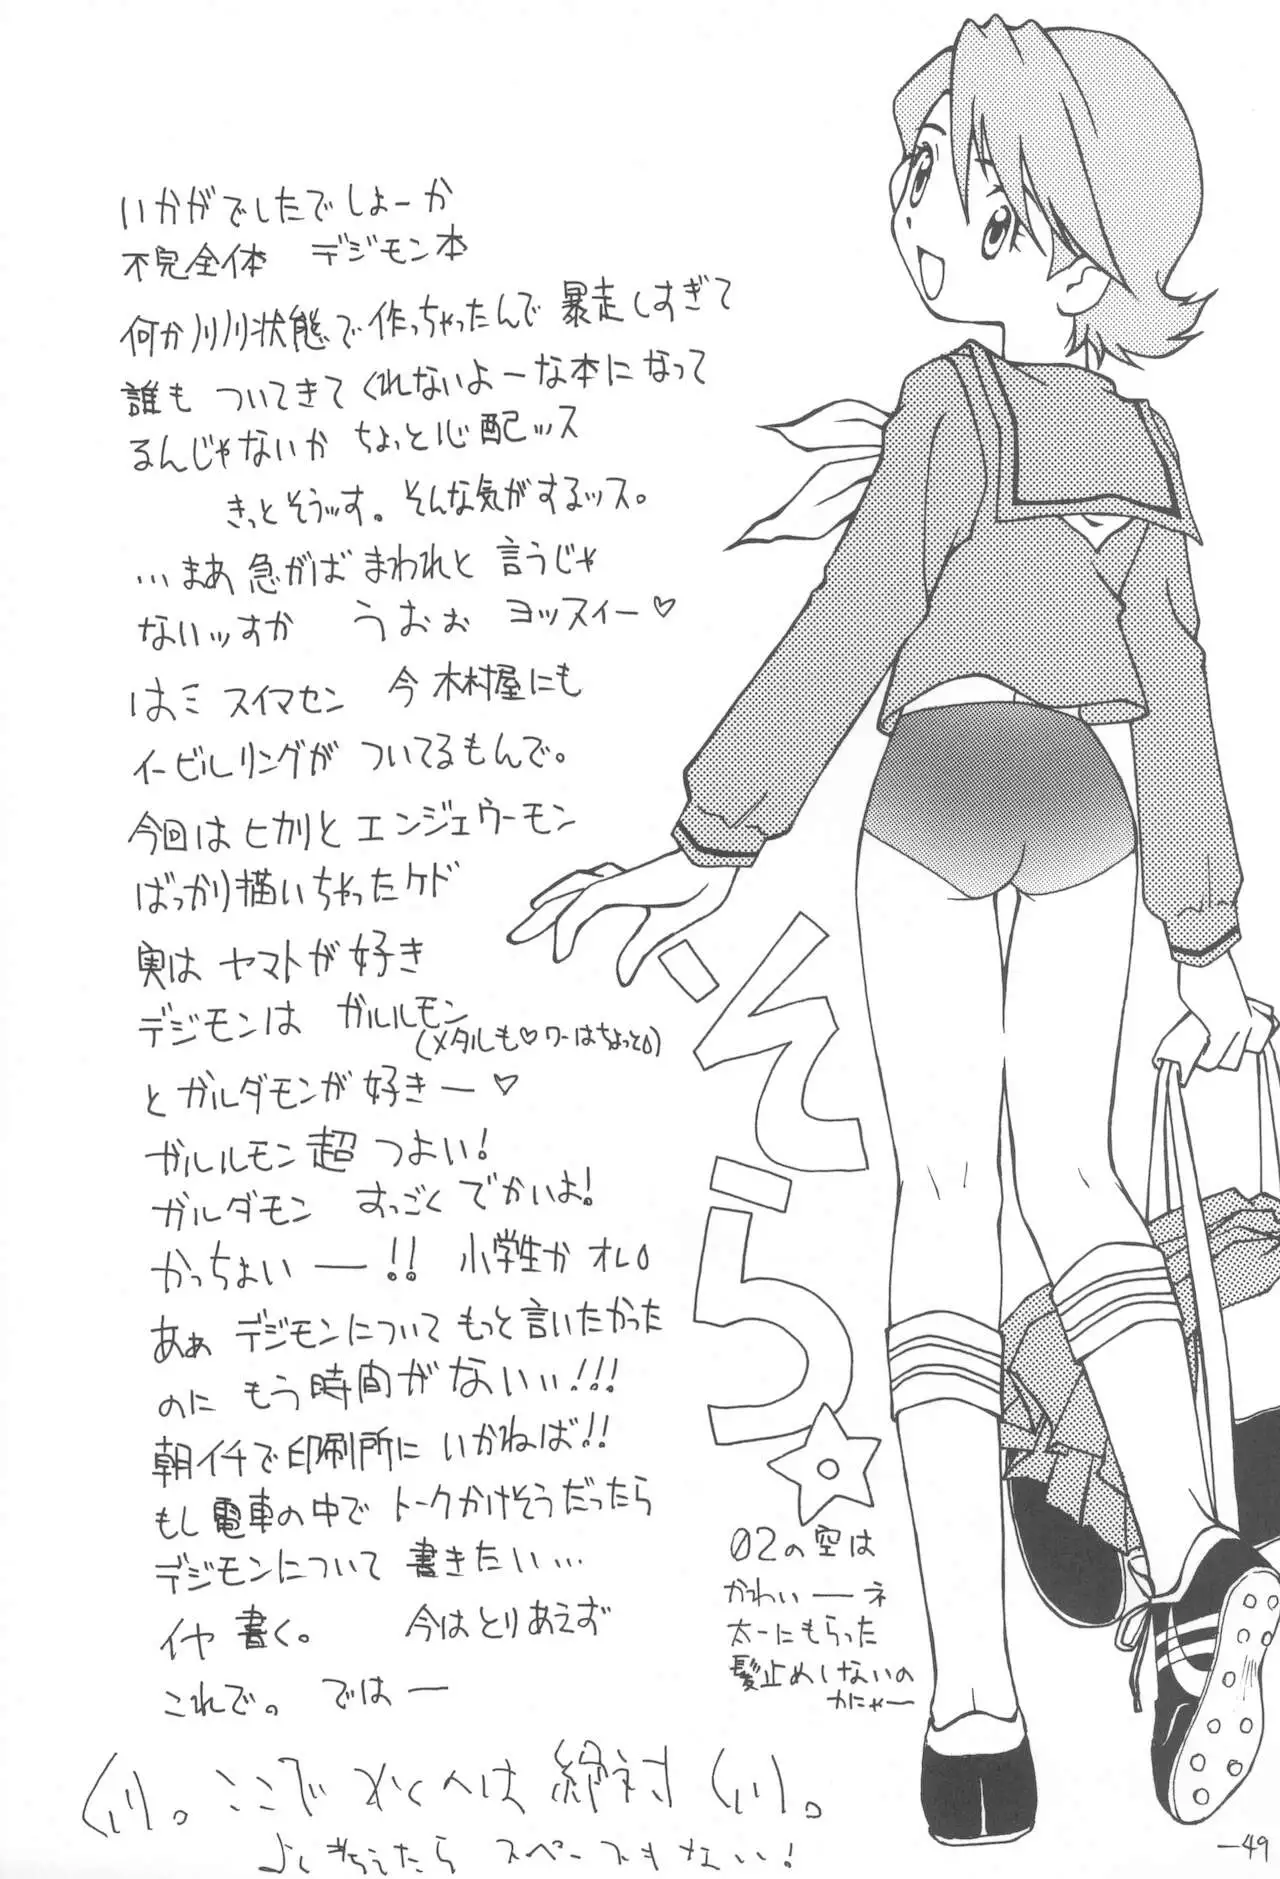 いかがでしたでしょーか
不完全体 デジモン本
何か川川状態で作っちゃったんで 暴走しすぎて
誰も ついてきてくれないよーな本になって
るんじゃないか ちょっと心配ッス
きっとそうッす。そんな気がするッス。
…まあ 急がば まわれと 言うじゃ
ないッすか うおぉ ヨッスィー♡
はミ スイマセン 今 木村屋にも
イービルリングが ついてるもんで。
今回は ヒカリと エンジェウーモン
ばっかり描いちゃったケド
実は ヤマトが好き
デジモンは ガルルモン
(メタルも♡ワーはちょっと)
とガルダモンが好きー♡
ガルルモン 超 つよい!
ガルダモン すっごく でかいよ!
かっちょいー!! 小学生か オレ
あぁ デジモンについて もっと言いたかった
のに もう時間がないぃぃ!!!
朝イチで印刷所に いかねば!!
もし電車の中で トークかけそうだったら
デジモンについて 書きたい…
イヤ 書く。 今はとりあえず
これで。 ではー
そら☆
02の空は
かわいーネ
太一にもらった
髪止めしないの
かにゃー
ここで は絶対
よく考えたら スペースもない!
-49